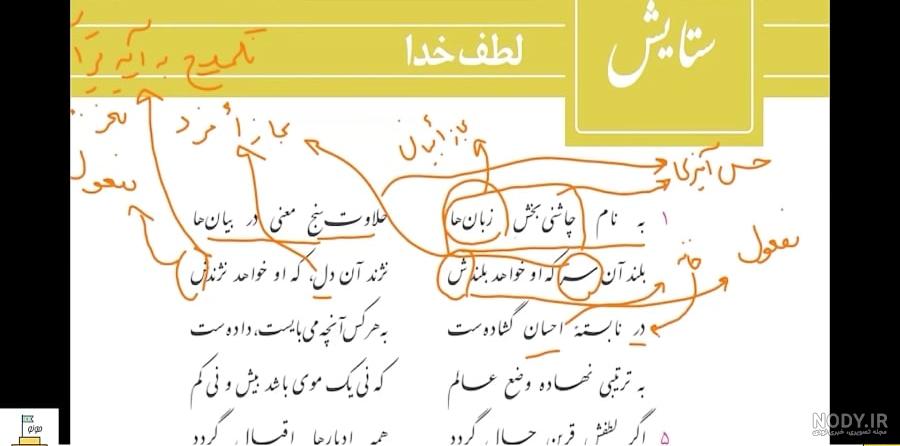 ستایش
لطف خدا
تلمیح به آیه
مجاز از
مجاز از
حس آمیزی
مفعول
مفعول
۱ به نام چاشنی بخش زبان‌ها حلاوت سنج معنی در بیان‌ها
بلند آن سر که او خواهد بلندش نژند آن دل، که او خواهد نژندش
در نابستهٔ احسان گشاده‌ست به هر کس آنچه می‌بایست، داده‌ست
به ترتیبی نهاده وضع عالم که نی یک موی باشد بیش و نی کم
۵ اگر لطفش قرین حال گردد همه ادبارها اقبال گردد
NODY.IR